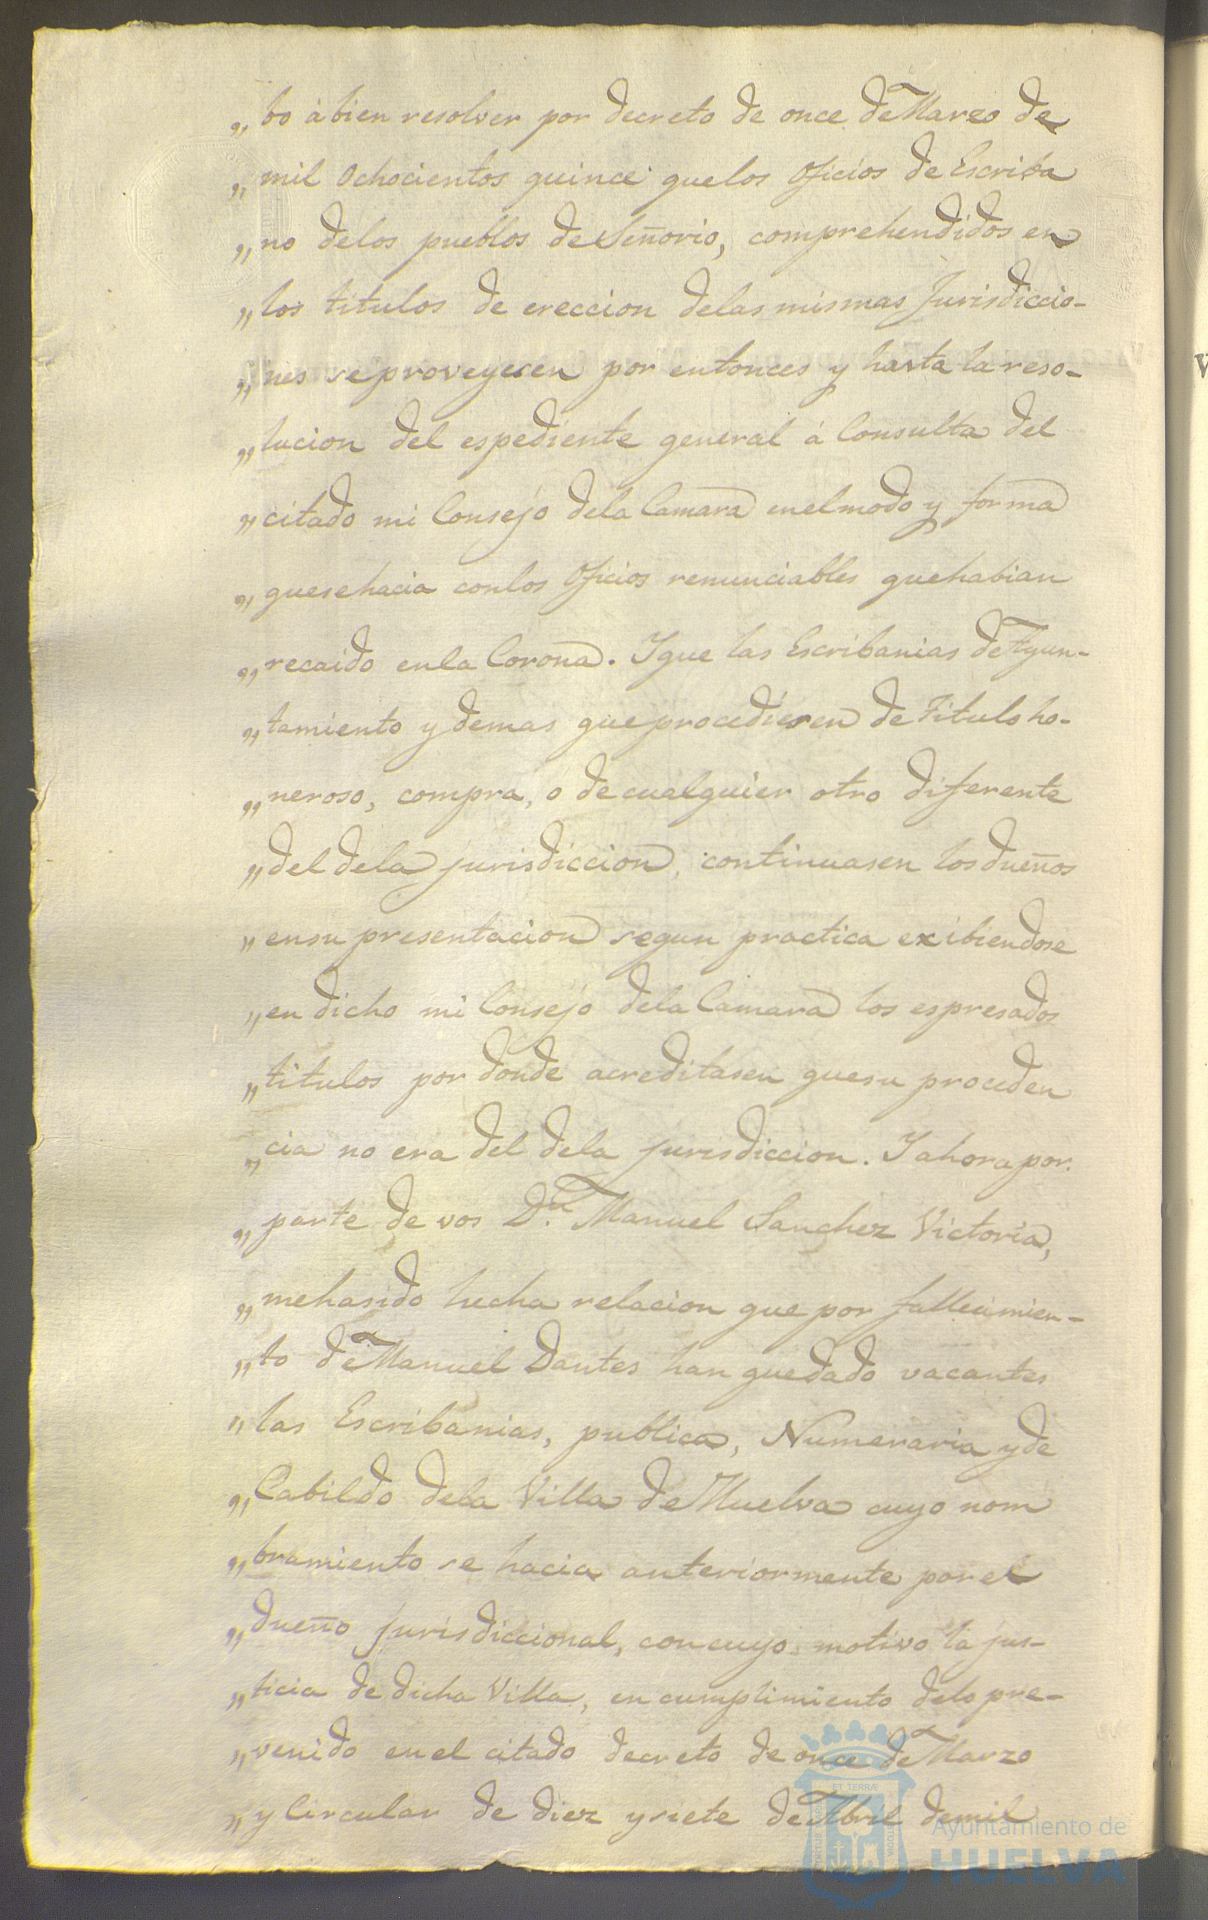 „bo á bien resolver por decreto de once de Marzo de
„mil Ochocientos quince que los Oficios de Escriba
„no delos pueblos de Señorio, comprehendidos en
„los titulos de ereccion delas mismas Jurisdiccio-
„nes se proveyesen por entonces y hasta la reso-
„lucion del espediente general á Consulta del
„citado mi Consejo dela Camara en el modo y forma
„que se hacia con los Oficios renunciables que habian
„recaido en la Corona. Y que las Escribanias de Ayun-
„tamiento y demas que procediesen de Titulo ho-
„neroso, compra, o de cualquier otro diferente
„del dela jurisdiccion, continuasen los dueños
„en su presentacion segun practica exibiendose
„en dicho mi Consejo dela Camara los espresados
„titulos por donde acreditasen que su proceden
„cia no era del dela jurisdiccion. Y ahora por
„parte de vos D.n Manuel Sanchez Victoria,
„me ha sido hecha relacion que por fallecimien-
„to de Manuel Dantes han quedado vacantes
„las Escribanias, publica, Numeraria y de
„Cabildo dela Villa de Huelva cuyo nom
„bramiento se hacia anteriormente por el
„dueño jurisdiccional, con cuyo motivo la jus-
„ticia de dicha Villa, en cumplimiento delo pre-
„venido en el citado decreto de once de Marzo
„y Circular de diez y siete de Abril de mil
ET TERRÆ
Ayuntamiento de
HUELVA